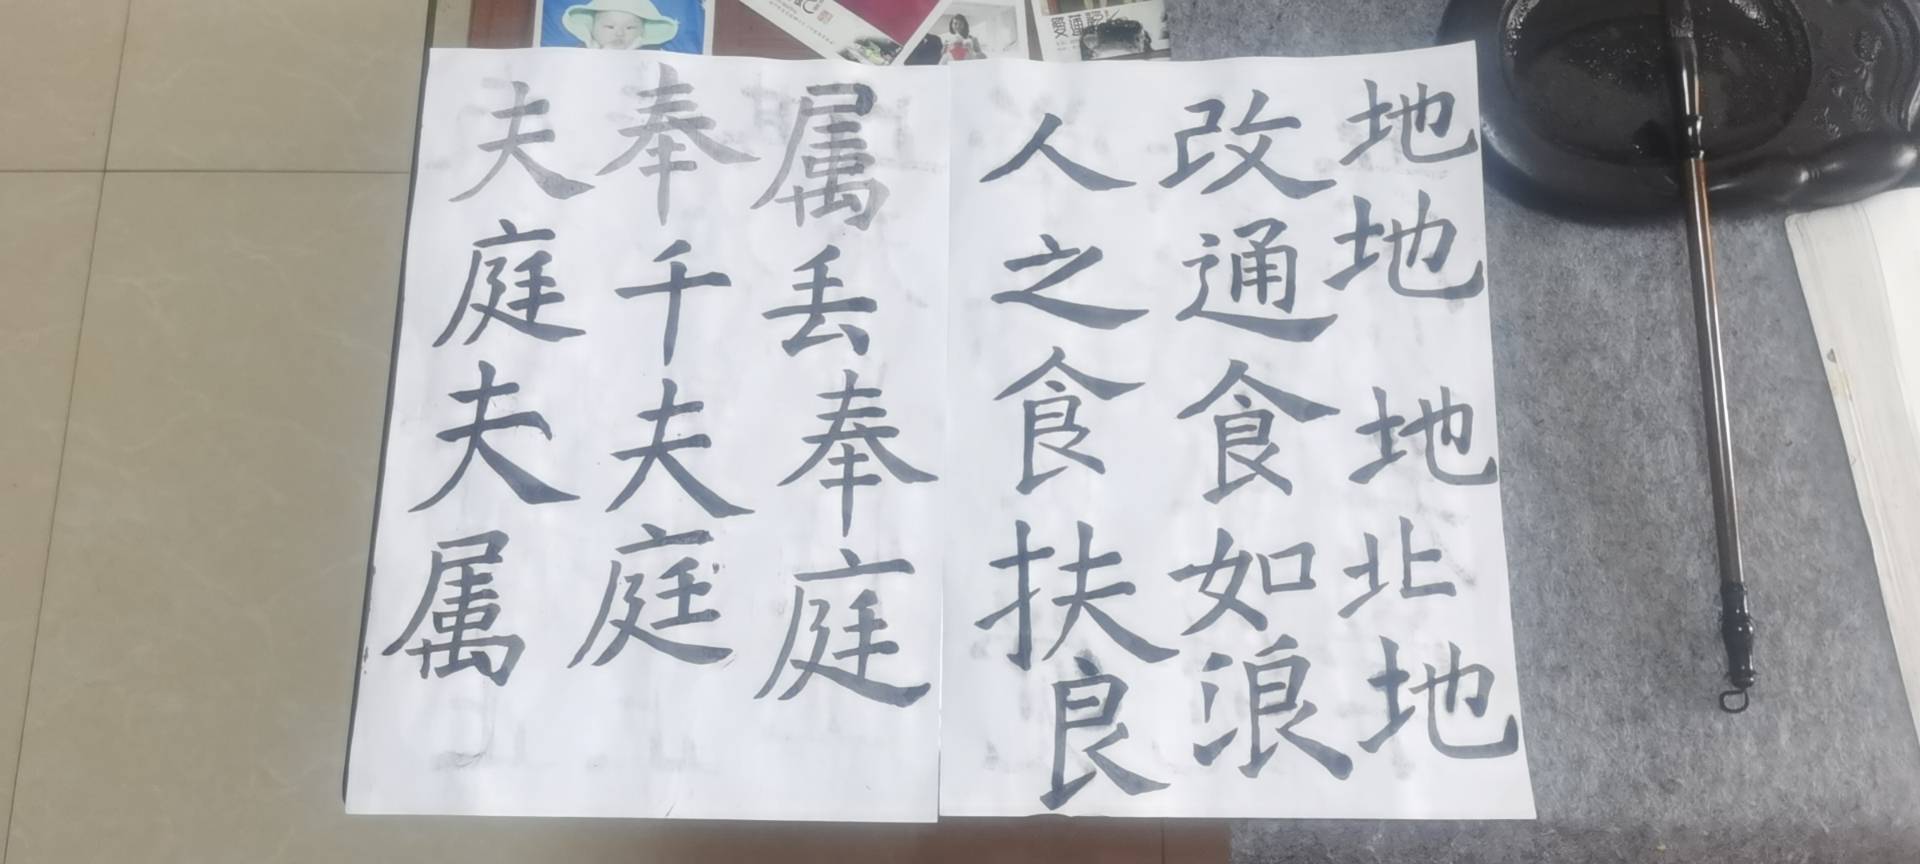 地地地北地
改通食如浪
人之食扶良
属丢奉庭
奉千夫庭
夫庭夫属